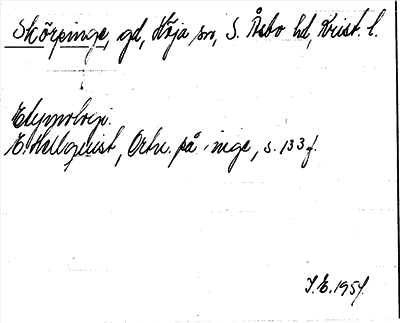 Skörpinge, gd, Höja sn, S. Åsbo hd, Krist. l.
Etymologi.
E. Hellquist, Ortn. på -inge, s. 133 f.
I.E. 1954.